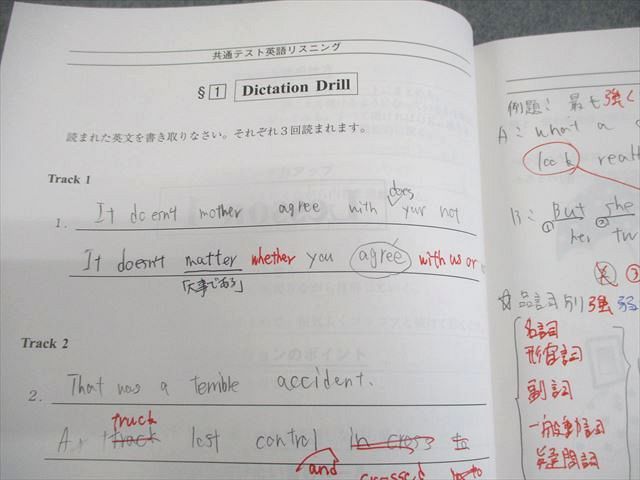 共通テスト英語リスニング
§ 1 Dictation Drill
読まれた英文を書き取りなさい。それぞれ3回読まれます。
Track 1
does
1. It doesn't mother agree with your not
It doesn't matter whether you agree with us or
「大事である」
Track 2
2. That was a terrible accident.
truck
A track lost control in cross
and crossed
例題: 最も強く
A: what a
look reall
B: But she
① ②
he, tw
③
☆品詞別 強 弱
名詞
形容詞
副詞
一般動詞
疑問詞